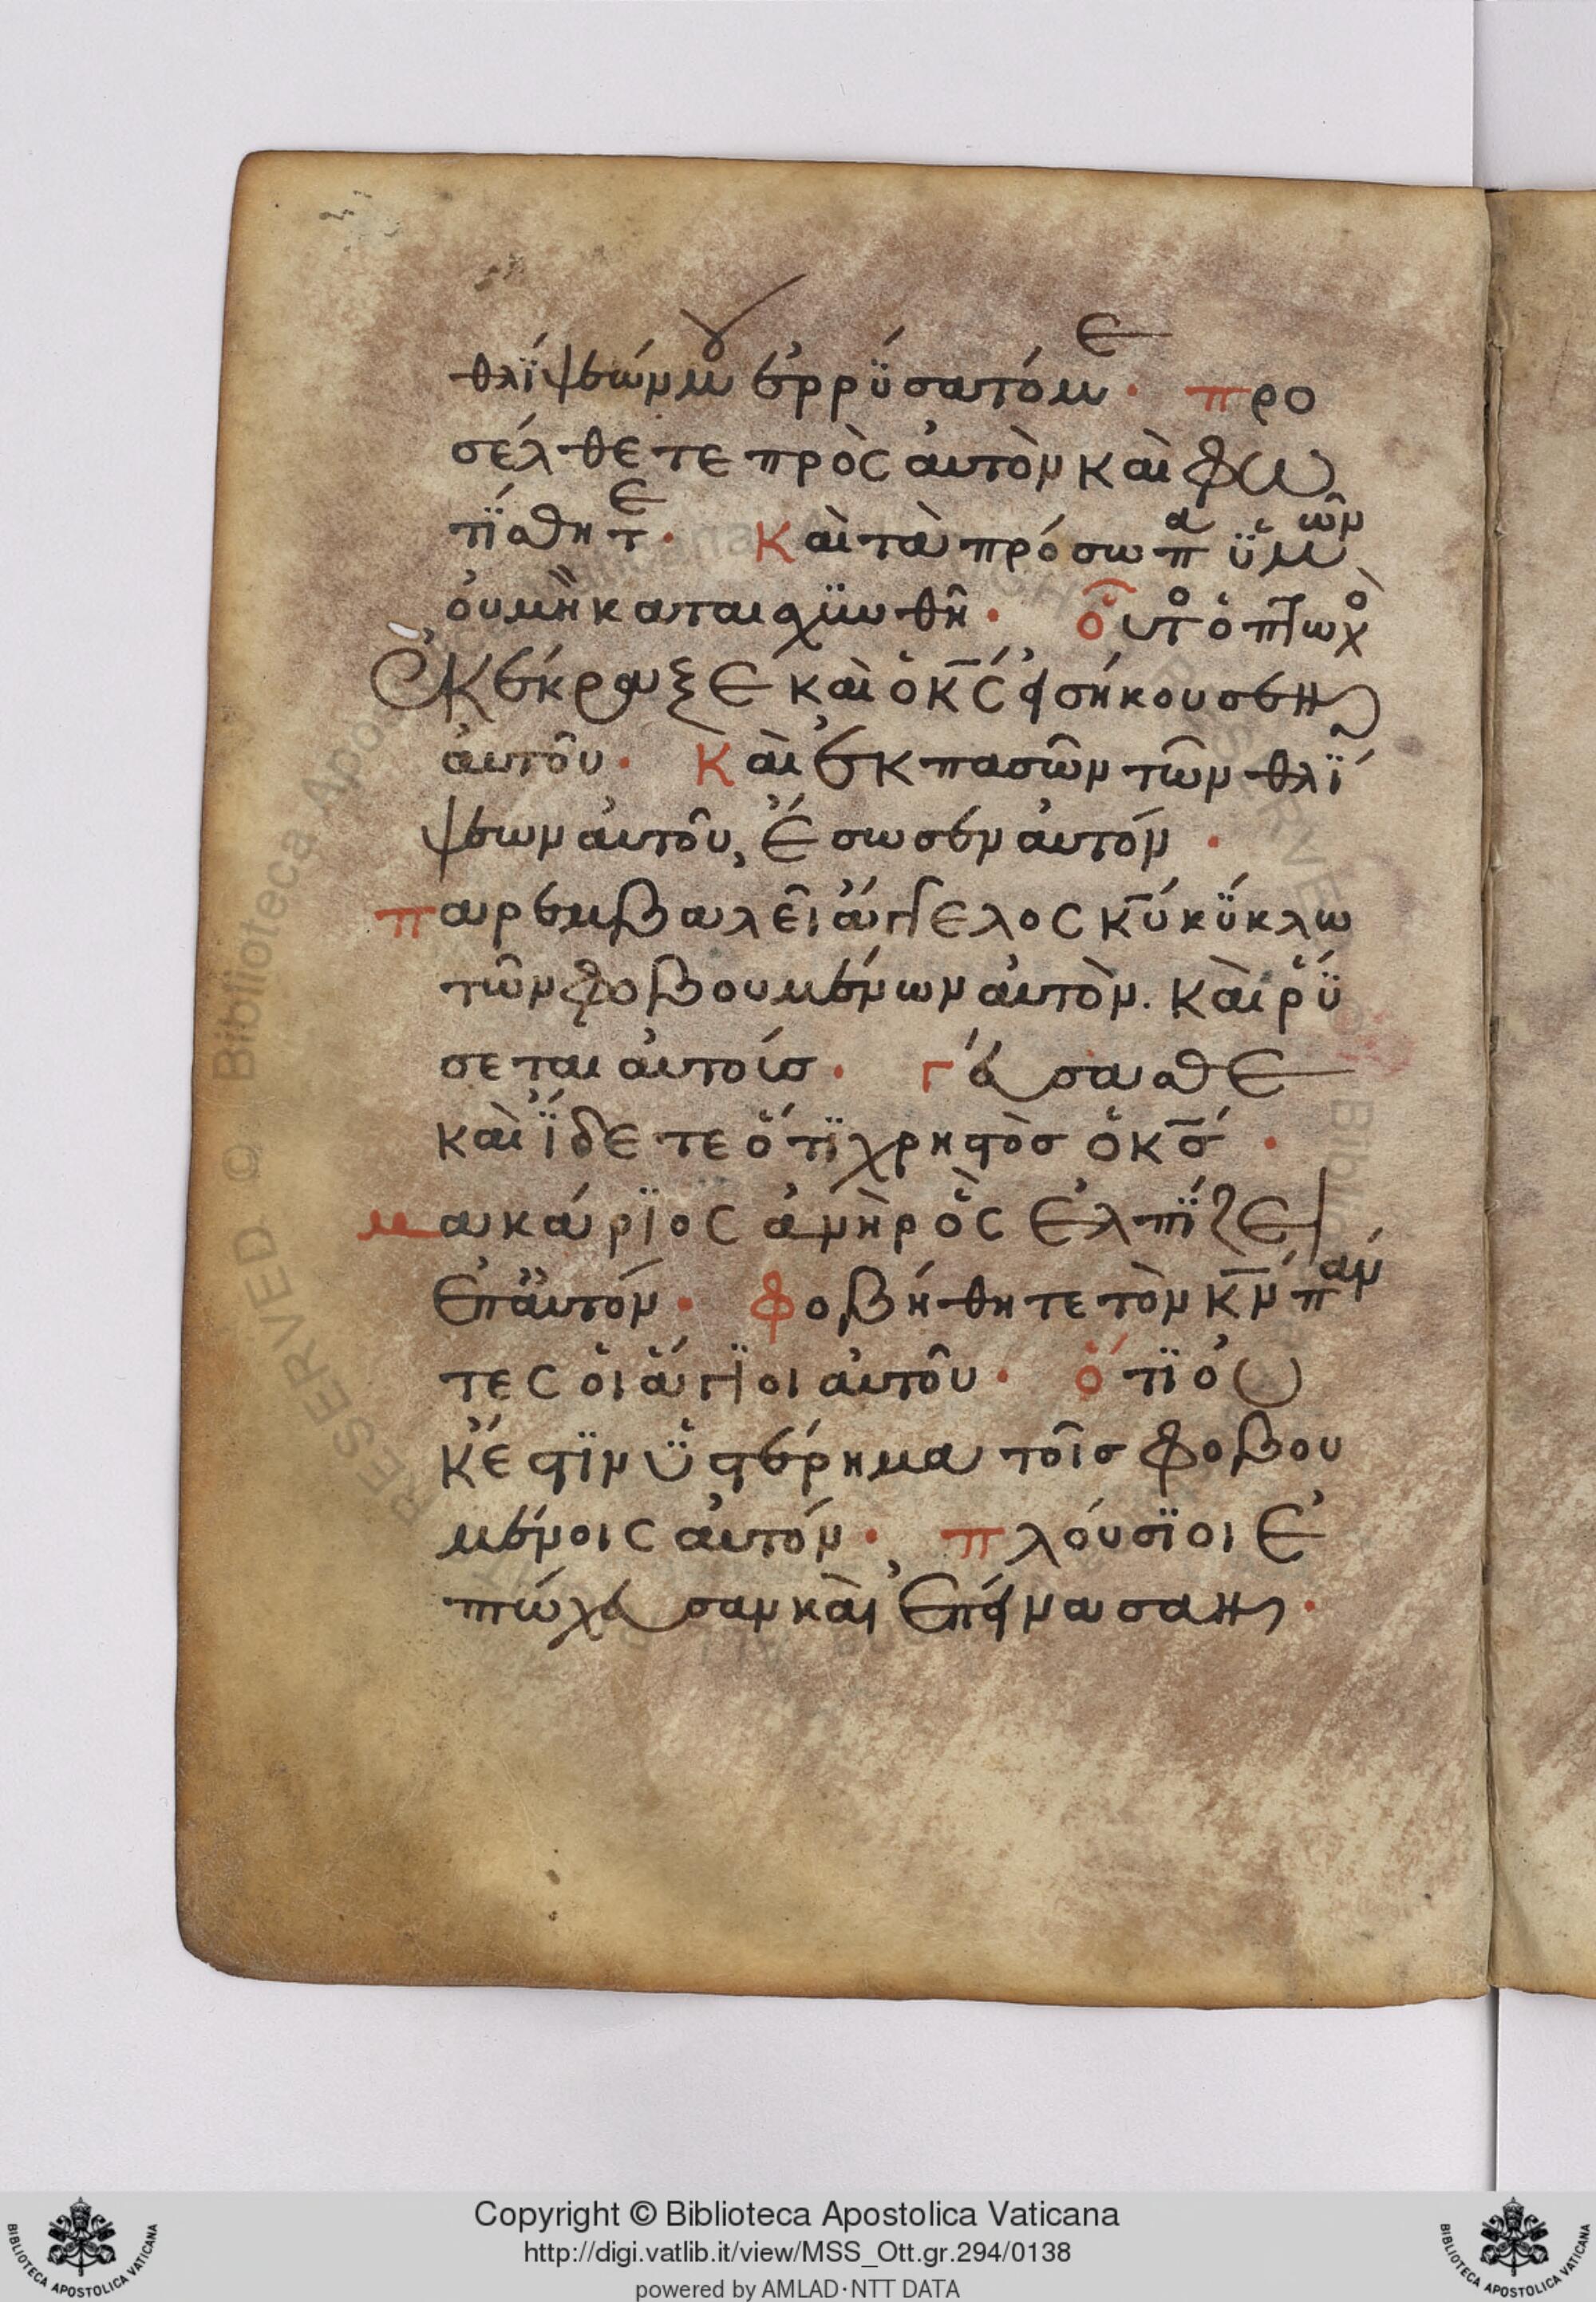 θλϊψεών μου ἐρρϋσατό με· προ
σέλθετε πρὸς ἀυτὸν καὶ φω
τϊσθητε· Κὰι τὰ πρόσωπα ὑμῶν
ὀυ μὴ καταισχϋνθῆ· οὗτος ὁ πτωχὸς
ἐκέκραξε καὶ ὁ κς ἐισήκουσεν
ἀυτοῦ· Κὰι ἐκ πασῶν τῶν θλϊ
ψεων ἀυτοῦ, ἔσωσεν ἀυτόν·
παρεμβαλεῖ ἄγγελος κυ κϋκλω
τῶν φοβουμένων ἀυτὸν. κὰι ῥϋ
σεται ἀυτοίσ· γεύσασθε
καὶ ἴδετε ὅτϊ χρηστὸσ ὁ κσ·
μακάρϊος ἀνὴρ ὃς ἐλπϊζει
ἐπ ἀυτόν· φοβήθητε τὸν κν πάν
τες ὁι ἅγϊοι ἀυτοῦ· ὅτϊ ὀυ
κ ἔστϊν ὑστέρημα τοῖσ φοβου
μένοις ἀυτόν· πλόυσϊοι ἐ
πτώχευσαν κὰι ἐπείνασαν·
Copyright © Biblioteca Apostolica Vaticana
http://digi.vatlib.it/view/MSS_Ott.gr.294/0138
powered by AMLAD·NTT DATA